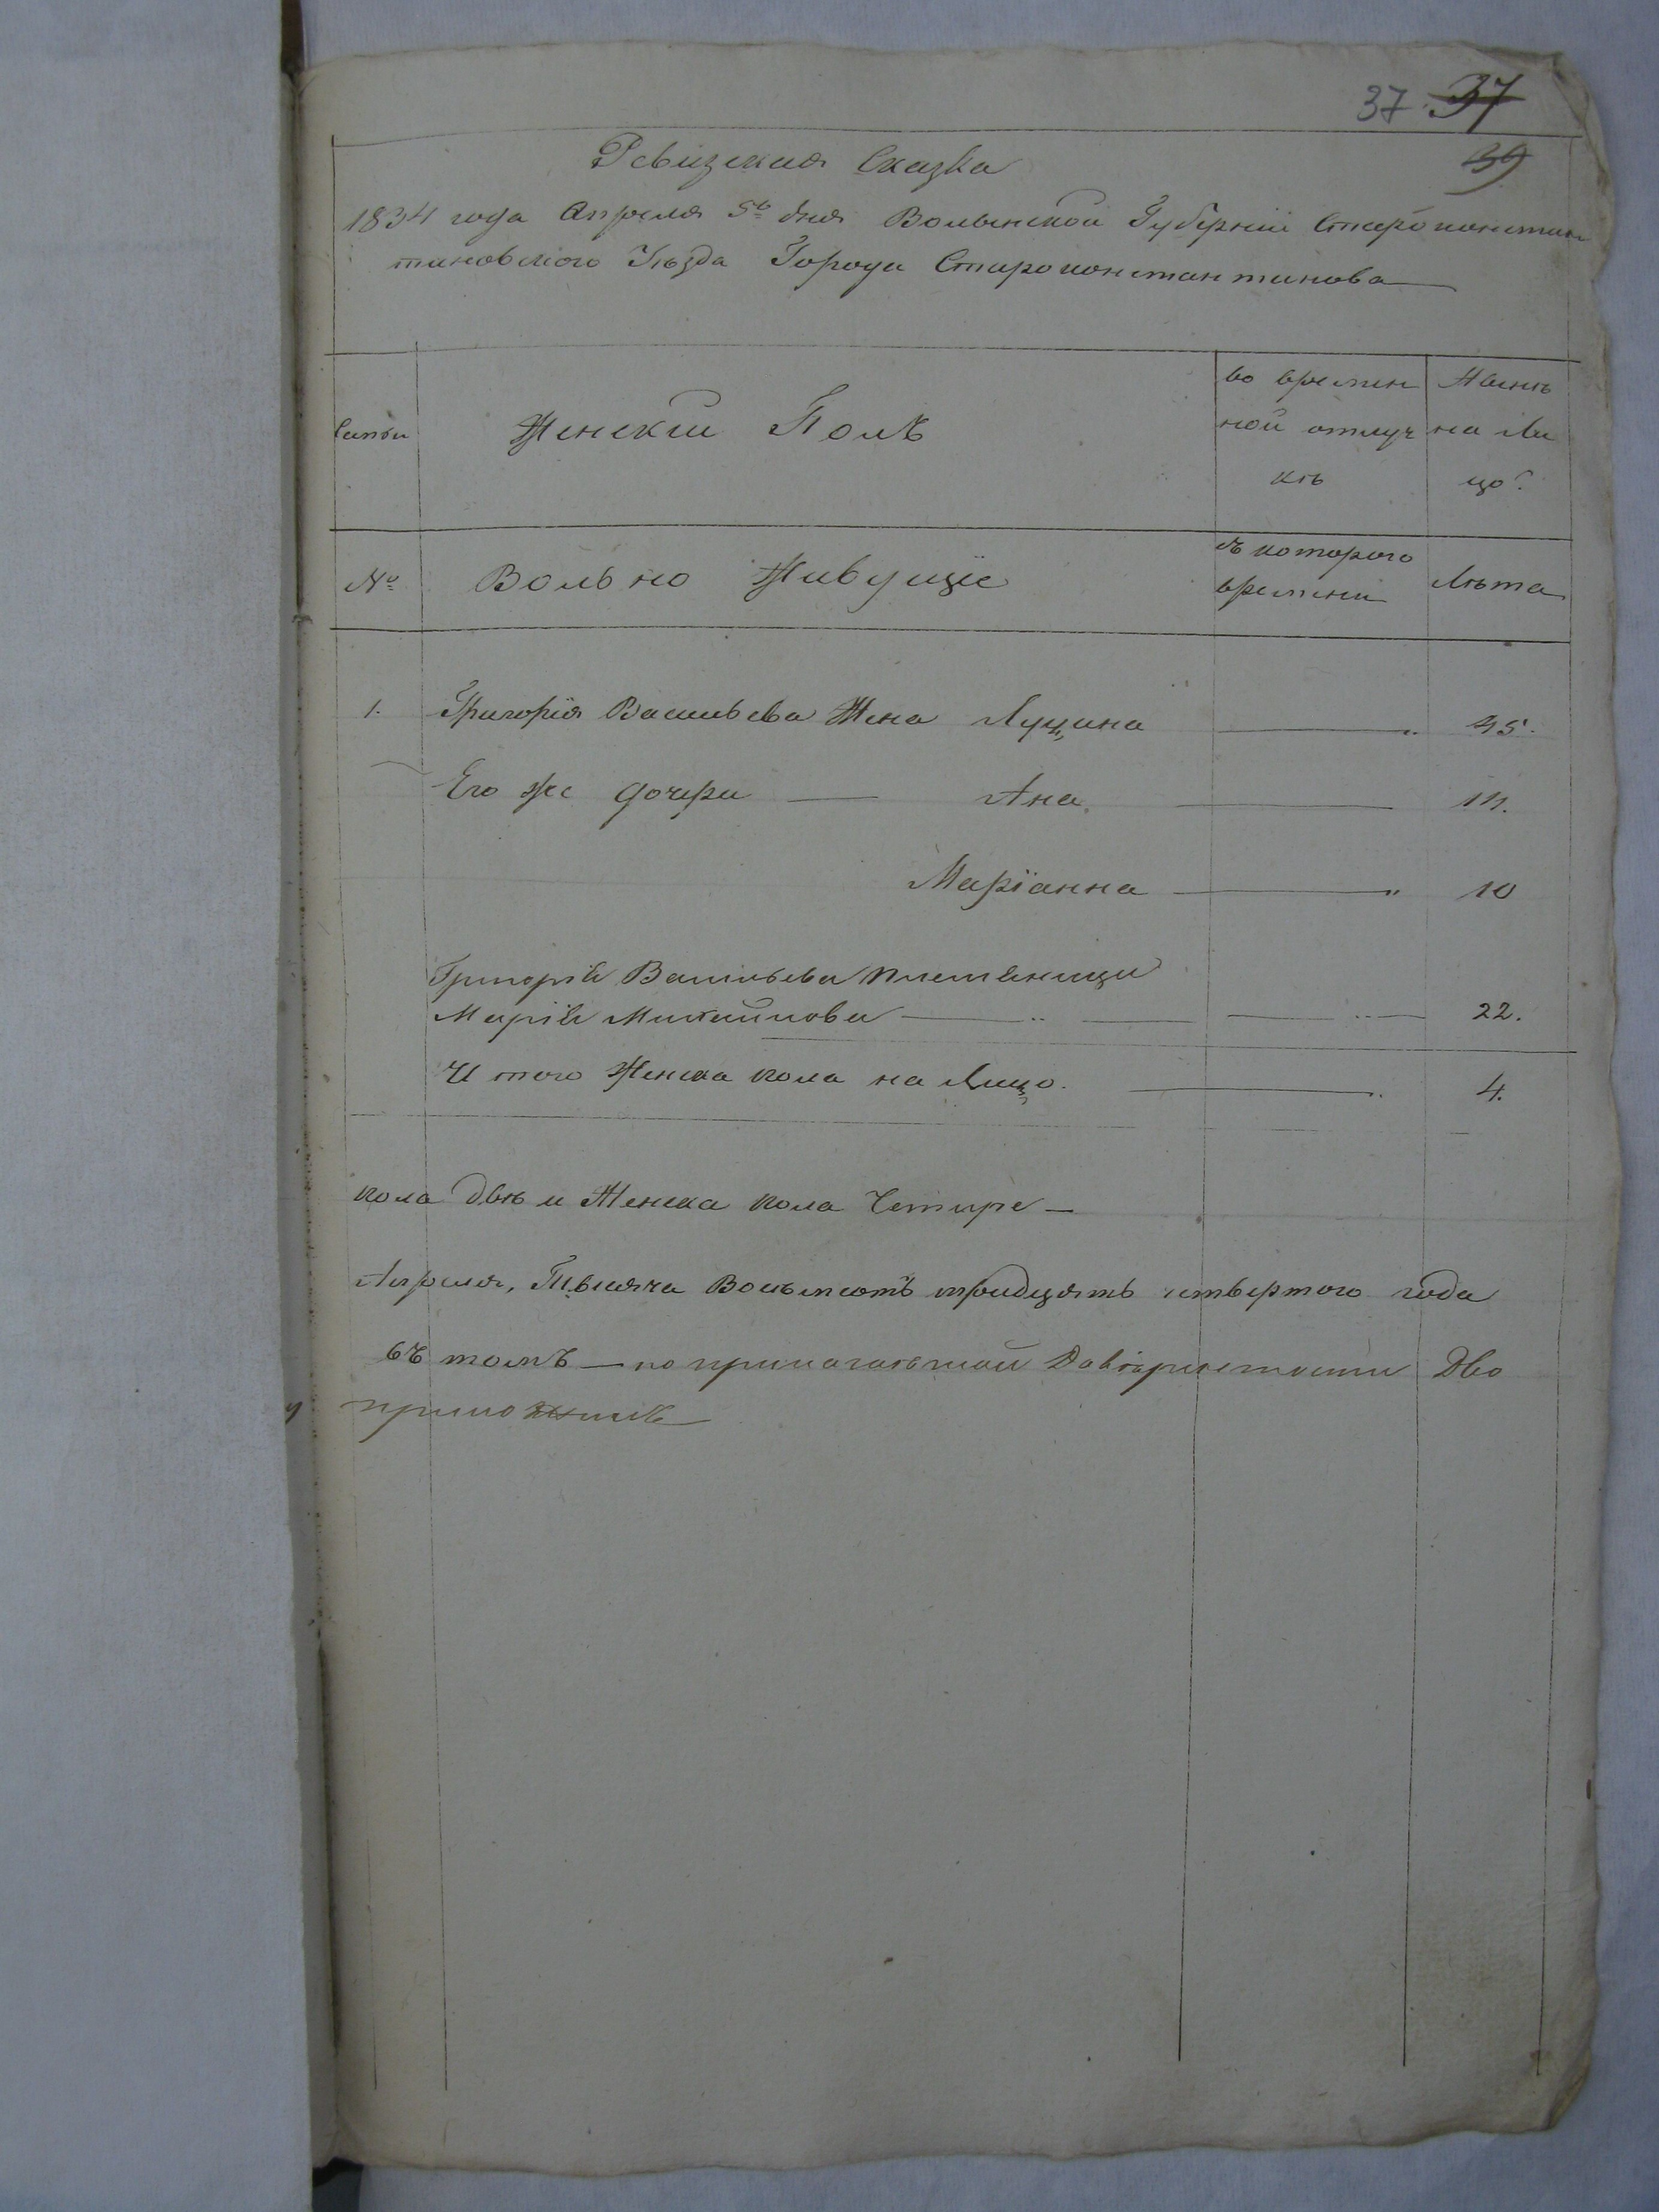 37. 37
39
Ревизская Сказка
1834 года Апреля 5го дня Волынской Губернии Староконстан
тиновского Уѣзда Города Староконстантинова
Семьи
Женский Полъ
во времен
ной отлуч
кѣ
Нынѣ
на Ли
цо
№
Вольно Живущіе
съ которого
времени
Лѣта
1. Григорія Васильева Жена Луцина 45.
Его же дочери Ана 14.
Маріанна 10
Григорія Васильева племяница
Марія Михайлова 22.
И того Женска пола на Лицо. 4.
пола двѣ и Женска пола Четыре
Апреля, Тысяча Восьмсотъ тридцять четвертого года
въ томъ по прилагаемой Довѣренности Дво
приложилъ